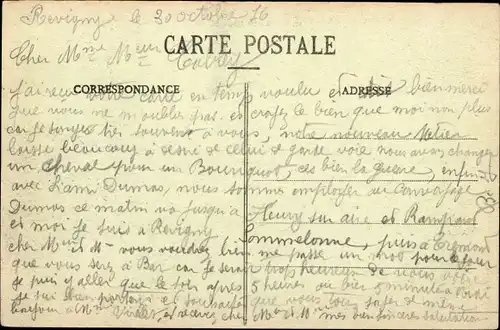 Revigny le 30 octobre 16
Cher Mme Meur
CARTE POSTALE
CORRESPONDANCE
ADRESSE
J'ai reçu votre carte en temps voulu et bien merci
que vous ne m'oubliez pas et croyez le bien que moi non plus
car je songe très souvent à vous, notre nouveau métier
laisse beaucoup à desiré de celui de garde voie nous avons changer
un cheval pour un Bourriquot ces bien la guerre, enfin
avec l'ami Dumas, nous sommes employer au
Dumas ce matin va jusqu'à Fleury sur aire et Rampont
et moi je suis à Revigny
cher Mr et Mme vous voudrez bien me passe un mot pour le jour
que vous serez à Bar car je serai trois heures de
je puis y aller que le soir après 5 heures ou bien 5 minutes à midi
je suis bien portant et souhaite que vous
bonjour à Mr et Mme mes sincères salutations